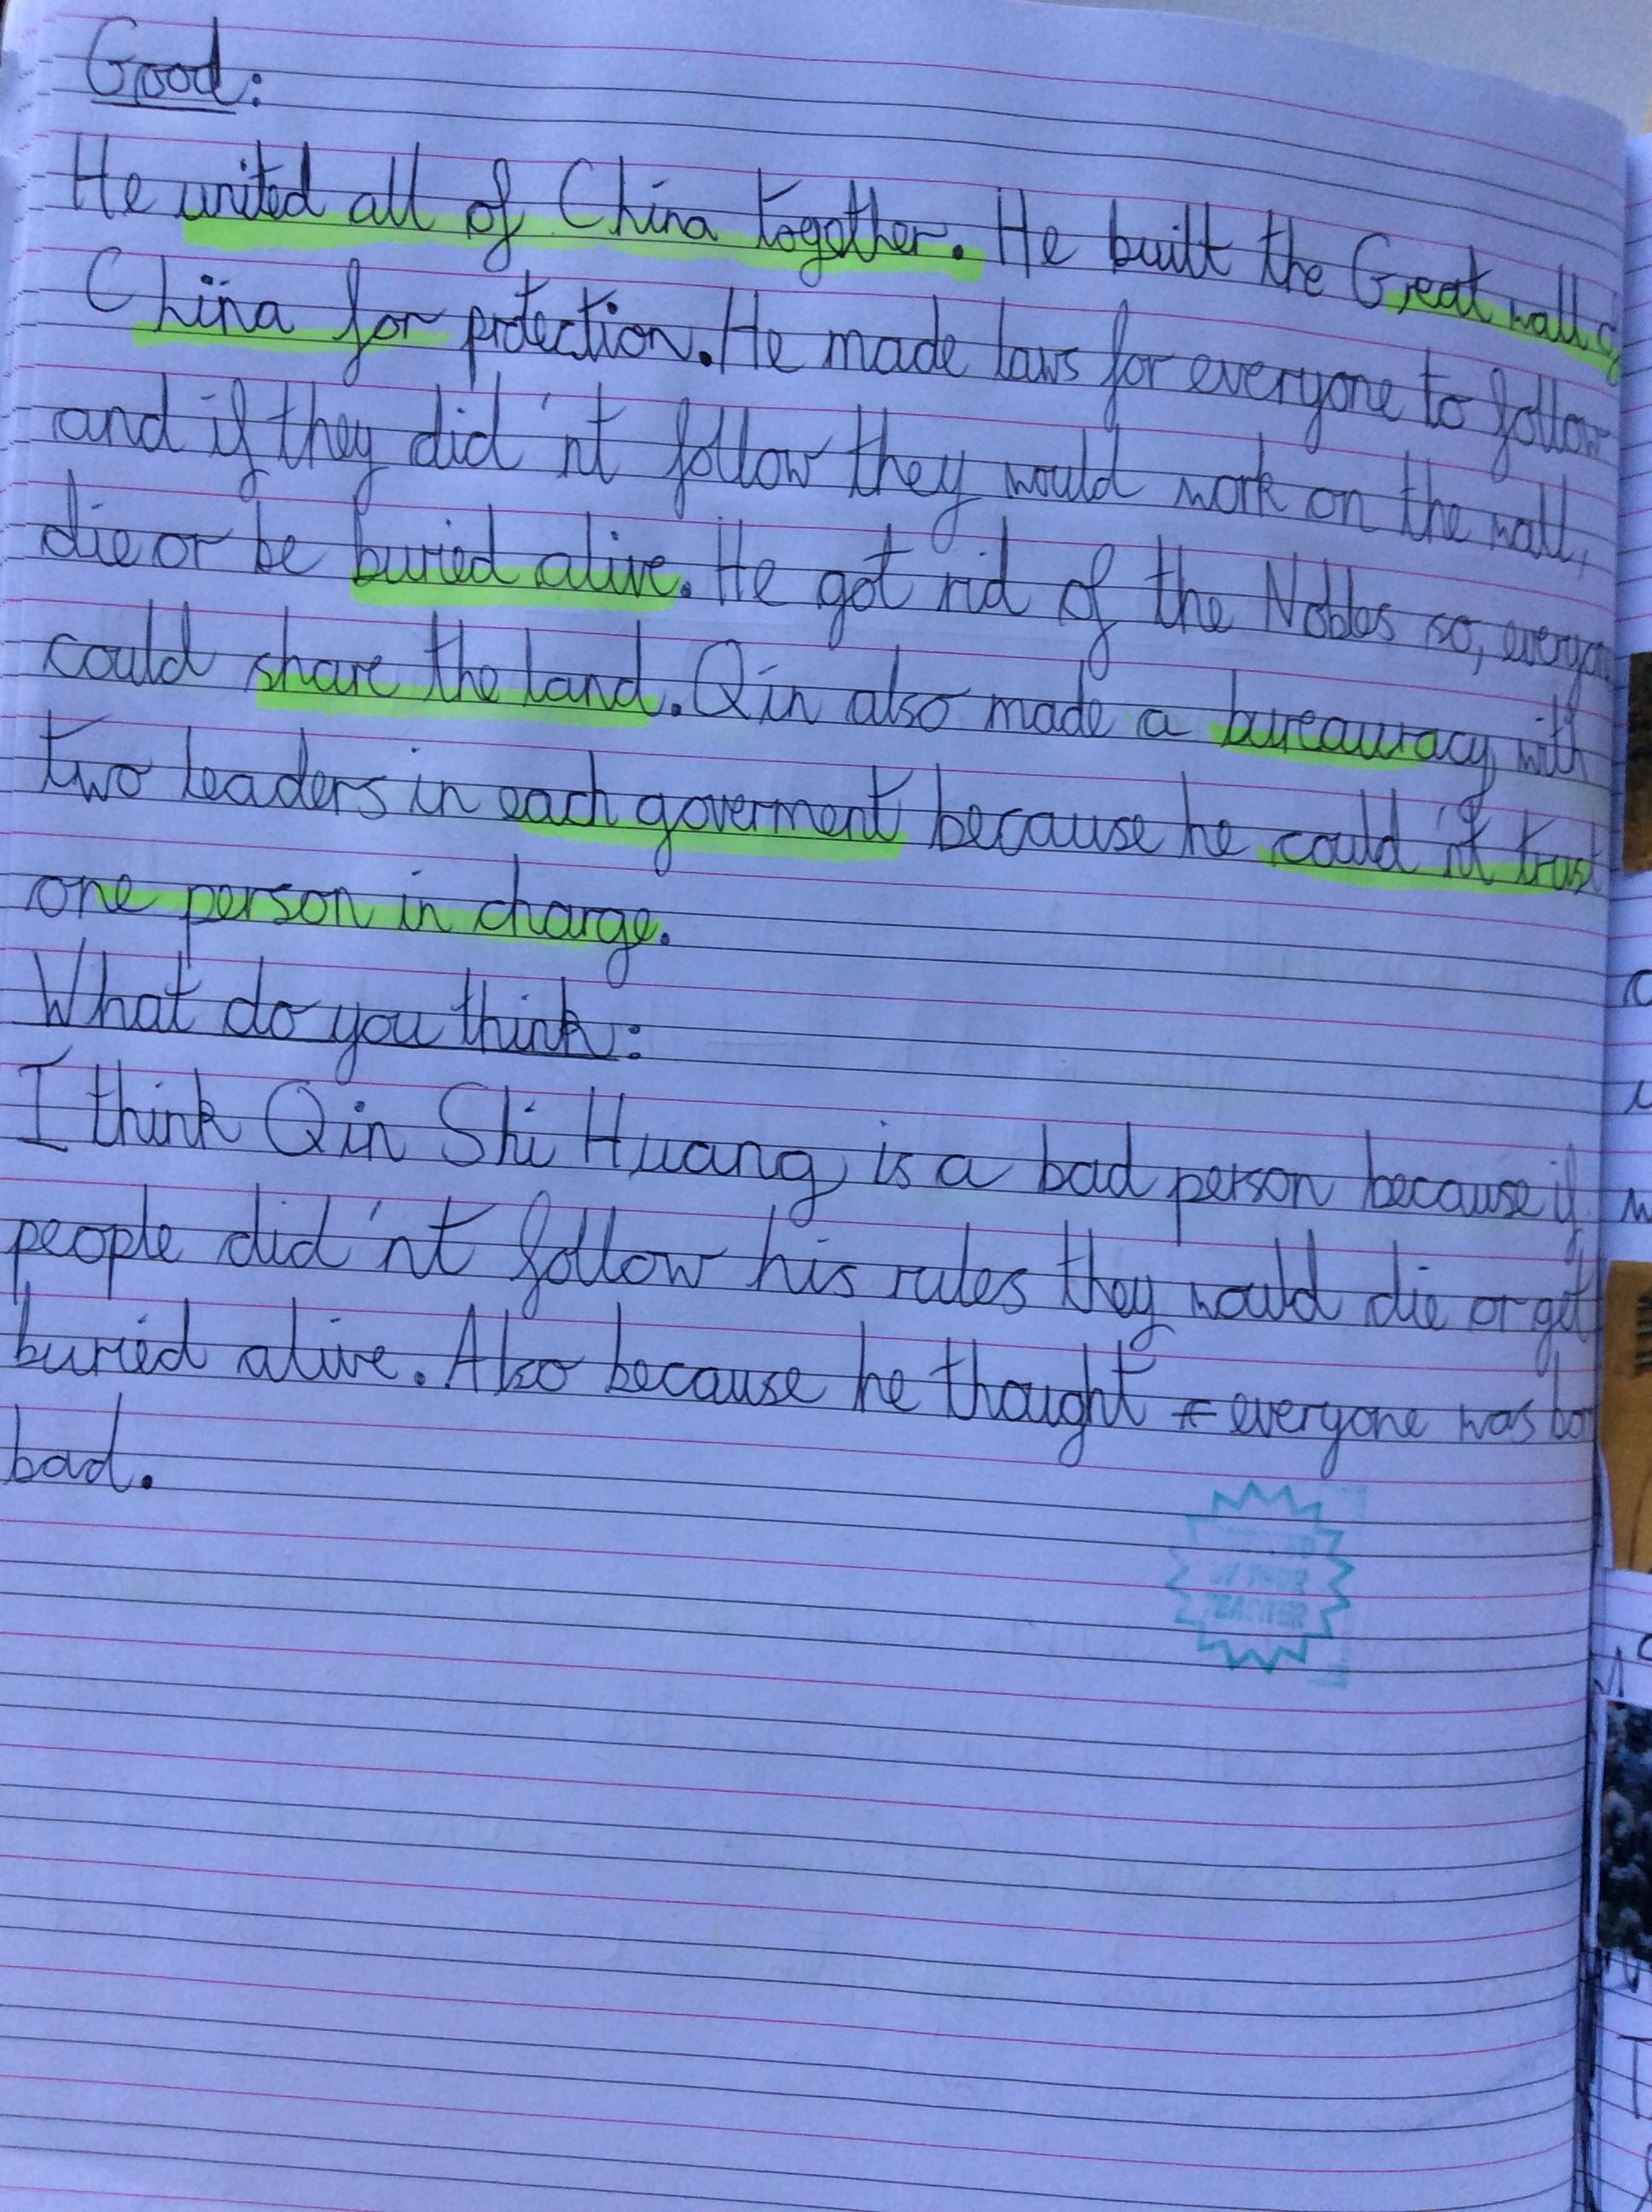 Good:
He united all of China together. He built the Great wall of
China for protection. He made laws for everyone to follow
and if they did'nt follow they would work on the wall,
die or be buried alive. He got rid of the Nobles so, everyone
could share the land. Qin also made a bureaucracy with
two leaders in each goverment because he could'nt trust
one person in charge.
What do you think:
I think Qin Shi Huang is a bad person because if
people did'nt follow his rules they would die or get
buried alive. Also because he thought everyone was
bad.
BY YOUR
TEACHER